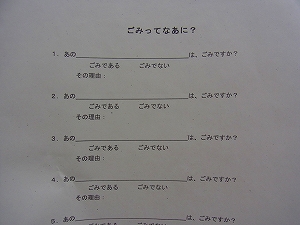 ごみってなあに？
1．あの＿＿＿＿＿＿＿＿＿＿は、ごみですか？
ごみである　ごみでない
その理由：
2．あの＿＿＿＿＿＿＿＿＿＿は、ごみですか？
ごみである　ごみでない
その理由：
3．あの＿＿＿＿＿＿＿＿＿＿は、ごみですか？
ごみである　ごみでない
その理由：
4．あの＿＿＿＿＿＿＿＿＿＿は、ごみですか？
ごみである　ごみでない
その理由：
5．あの＿＿＿＿＿＿＿＿＿＿は、ごみですか？
ごみである　ごみでない